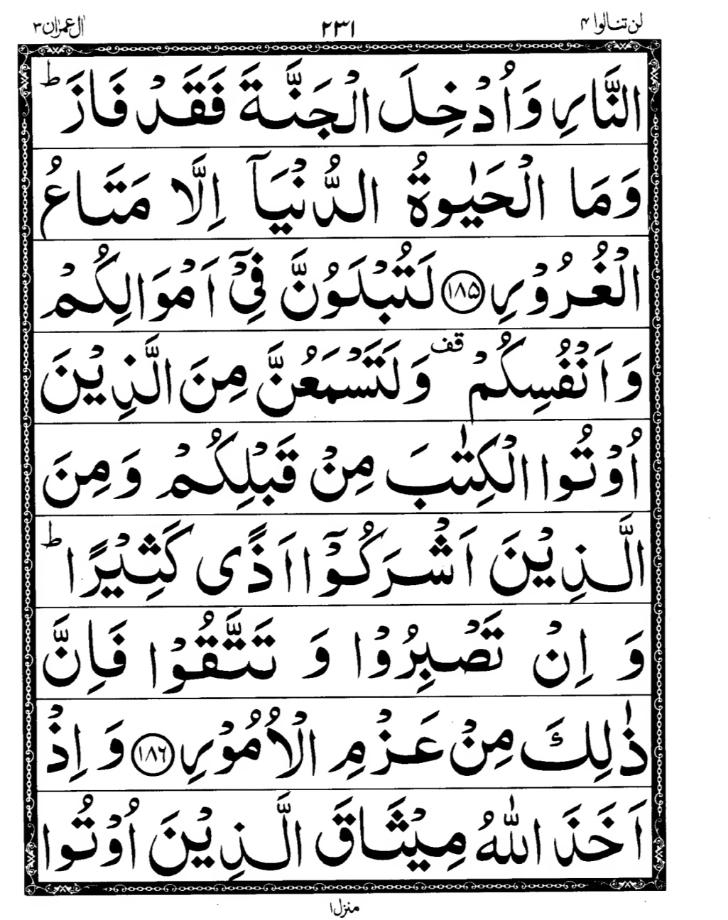 لن تنالوا ۴ ۲۳۱ اٰل عمرٰن ۳
النَّارِ وَاُدْخِلَ الْجَنَّةَ فَقَدْ فَازَ ؕ
وَمَا الْحَيٰوةُ الدُّنْيَاۤ اِلَّا مَتَاعُ
الْغُرُوْرِ ﴿۱۸۵﴾ لَتُبْلَوُنَّ فِيْۤ اَمْوَالِكُمْ
وَاَنْفُسِكُمْ قف وَلَتَسْمَعُنَّ مِنَ الَّذِيْنَ
اُوْتُوا الْكِتٰبَ مِنْ قَبْلِكُمْ وَمِنَ
الَّذِيْنَ اَشْرَكُوْۤا اَذًى كَثِيْرًا ؕ
وَ اِنْ تَصْبِرُوْا وَ تَتَّقُوْا فَاِنَّ
ذٰلِكَ مِنْ عَزْمِ الْاُمُوْرِ ﴿۱۸۶﴾ وَ اِذْ
اَخَذَ اللّٰهُ مِيْثَاقَ الَّذِيْنَ اُوْتُوا
منزل ۱